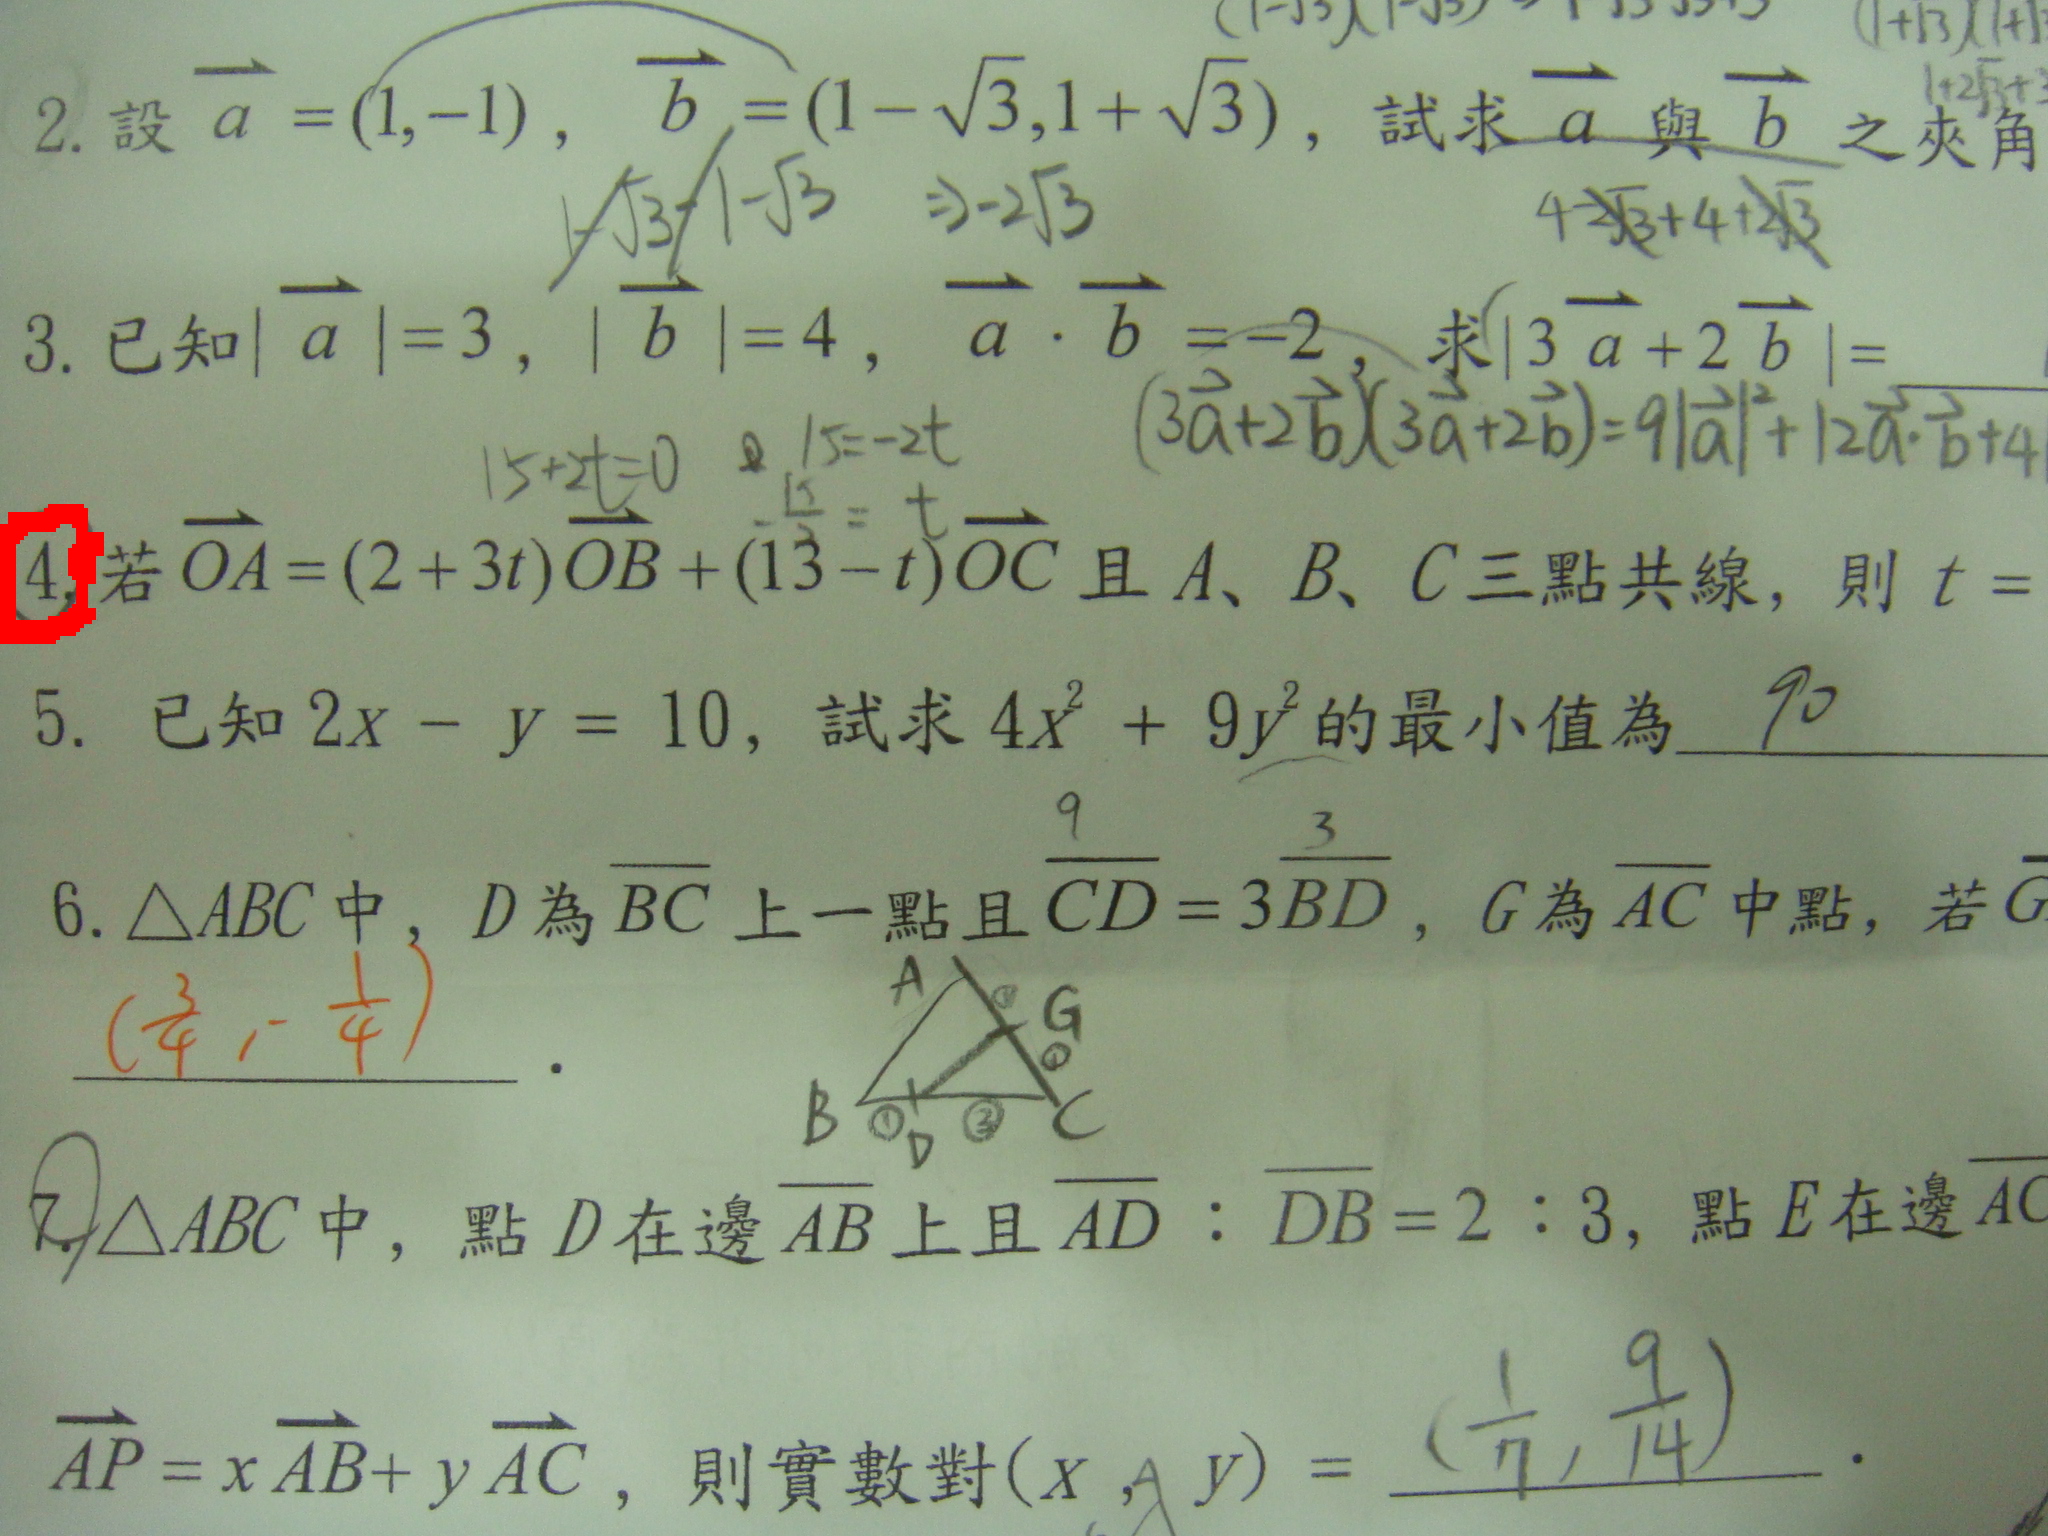 (1-√3)(1-√3) (1+√3)(1+√3
1+2√3+3
2. 設 a = (1,-1), b = (1-√3,1+√3), 試求 a 與 b 之夾角
1-√3-1-√3 ⇒-2√3 4-2√3+4+2√3
3. 已知| a |=3, | b |=4, a · b =-2, 求|3 a +2 b |=
(3a+2b)(3a+2b)=9|a|²+12a·b+4
15+2t=0 15=-2t
-15/2 = t
4. 若 OA=(2+3t)OB+(13-t)OC 且 A、B、C三點共線, 則 t =
5. 已知 2x - y = 10, 試求 4x² + 9y² 的最小值為 90
9 3
6. △ABC 中, D 為 BC 上一點且 CD = 3BD, G 為 AC 中點, 若 G
(3/4, -1/4) .
A G
B ① D ③ C
7. △ABC 中, 點 D 在邊 AB 上且 AD : DB = 2 : 3, 點 E 在邊 AC
AP = x AB + y AC, 則實數對(x , y) = (1/7, 9/14) .
A